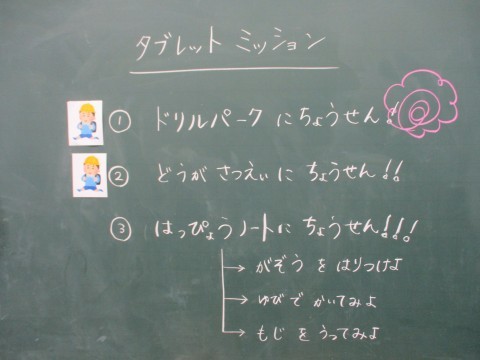 タブレット ミッション
① ドリルパーク にちょうせん!
② どうが さつえいに ちょうせん!!
③ はっぴょうノートに ちょうせん!!!
→ がぞう を はりつけよ
→ ゆびで かいてみよ
→ もじ を うってみよ